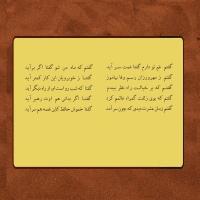 گفتم غم تو دارم گفتا غمت سر آید گفتم که ماه من شو گفتا اگر برآید
گفتم ز مهرورزان رسم وفا بیاموز گفتا ز خوبرویان این کار کمتر آید
گفتم که بر خیالت راه نظر ببندم گفتا که شب رو است او از راه دیگر آید
گفتم که بوی زلفت گمراه عالمم کرد گفتا اگر بدانی هم اوت رهبر آید
گفتم زمان عشرت دیدی که چون سر آمد گفتا خموش حافظ کاین غصه هم سر آید